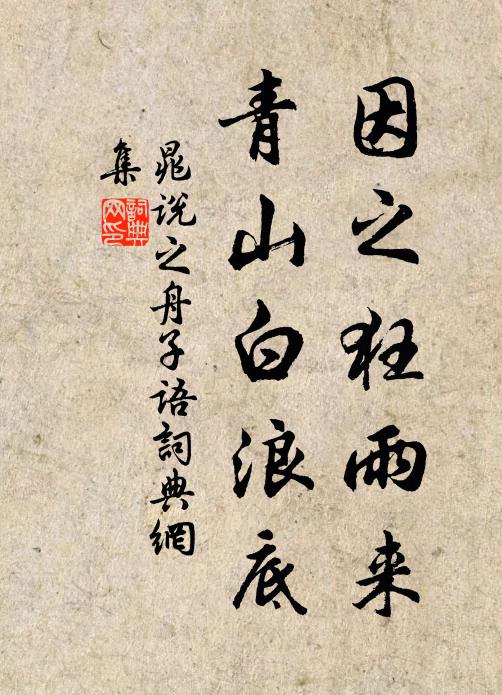 因之狂雨来
青山白浪底
晁说之舟子語詞典網
集
詞典
网印